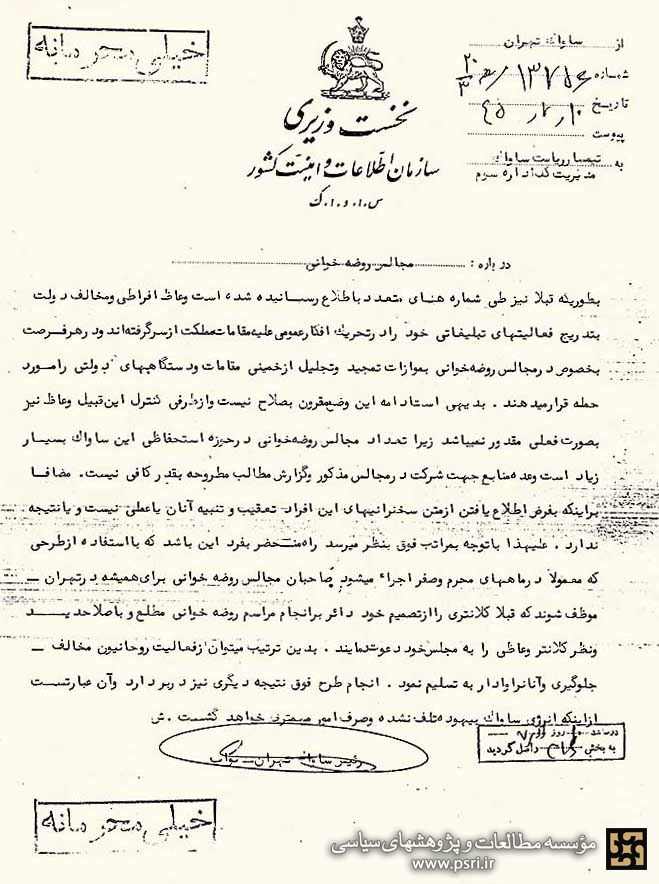 خیلی محرمانه
از ساواك تهران
شماره ۱۳۷۵۶/ ۲۰ هـ ۳
تاریخ ۴۵/۲/۱۰
پیوست
به تیمسار ریاست ساواك
مدیریت كل اداره سوم
نخست وزیری
سازمان اطلاعات و امنیت کشور
س.ا.و.ا.ک
درباره : مجالس روضه خوانی
بطوریکه قبلا نیز طی شماره های متعدد باطلاع رسانیده شده است وعاظ افراطی ومخالف دولت
بتدریج فعالیتهای تبلیغاتی خود را درتحریك افکارعمومی علیه مقامات مملکت ازسرگرفته اند ودرهرفرصت
بخصوص درمجالس روضه خوانی بموازات تمجید وتجلیل ازخمینی مقامات ودستگاههای دولتی رامورد
حمله قرارمیدهند . بدیهی است ادامه این وضع مقرون بصلاح نیست وازطرفی کنترل این قبیل وعاظ نیز
بصورت فعلی مقدور نمیباشد زیرا تعداد مجالس روضه خوانی درحوزه استحفاظی این ساواك بسیار
زیاد است وعده منابع جهت شرکت درمجالس مذکور وگزارش مطالب مطروحه بقدر کافی نیست. مضافا
براینکه بفرض اطلاع یافتن ازمتن سخنرانیهای این افراد تعقیب و تنبیه آنان یاعملی نیست و یانتیجه
ندارد . علیهذا باتوجه بمراتب فوق بنظر میرسد راه منحصر بفرد این باشد که بااستفاده ازطرحی
که معمولا درماههای محرم وصفر اجراء میشود صاحبان مجالس روضه خوانی برای همیشه درتهران ـ
موظف شوند که قبلا کلانتری را ازتصمیم خود دائر برانجام مراسم روضه خوانی مطلع و باصلاحدیـــد
ونظر کلانتر وعاظی را به مجلس خود دعوت نمایند . بدین ترتیب میتوان ازفعالیت روحانیون مخالف ـ
جلوگیری وآنانراوادار به تسلیم نمود . انجام طرح فوق نتیجه دیگری نیز دربر دارد وآن عبارتست
ازاینکه انرژی ساواك بیهوده تلف نشده وصرف امور مهمتری خواهد گشت .ش
رئیس ساواك تهران ـ نواب
درساعت روز
به بخش داخل گردید
خیلی محرمانه
مؤسسه مطالعات و پژوهشهای سیاسی
www.psri.ir